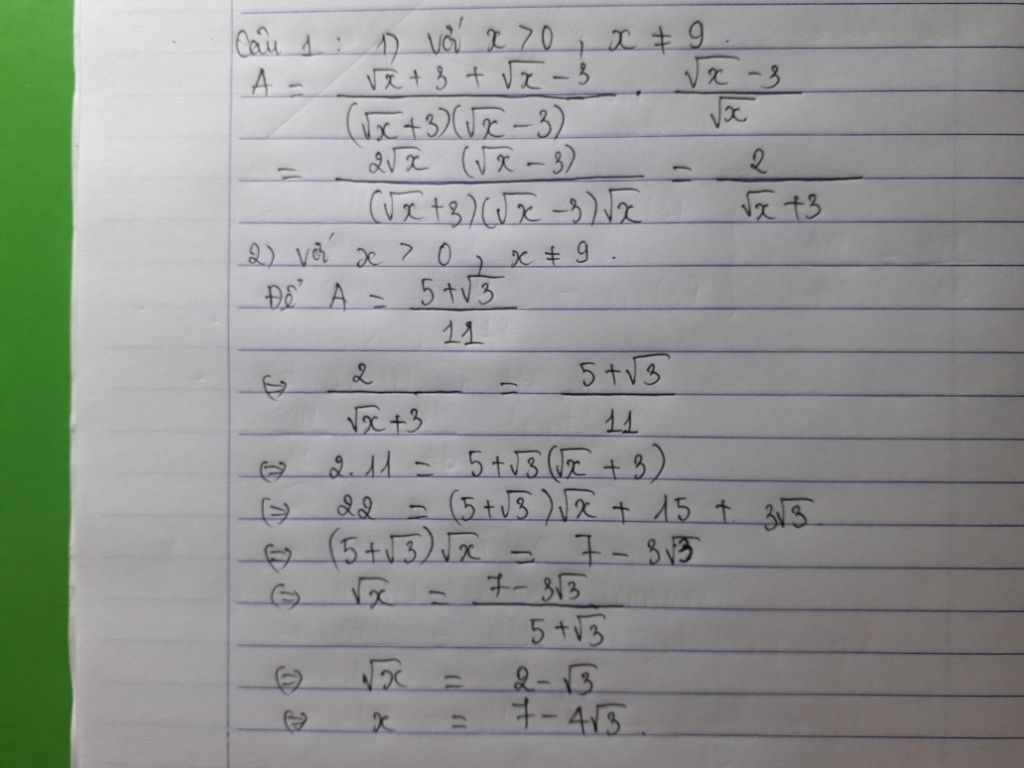 Câu 1 : 1) Với x > 0 , x ≠ 9 .
A = (√x + 3 + √x - 3)/((√x + 3)(√x - 3)) . (√x - 3)/√x
= (2√x (√x - 3))/((√x + 3)(√x - 3)√x) = 2/(√x + 3)
2) Với x > 0 , x ≠ 9 .
Để A = (5 + √3)/11
⇔ 2/(√x + 3) = (5 + √3)/11
⇔ 2.11 = 5 + √3(√x + 3)
⇔ 22 = (5 + √3)√x + 15 + 3√3
⇔ (5 + √3)√x = 7 - 3√3
⇔ √x = (7 - 3√3)/(5 + √3)
⇔ √x = 2 - √3
⇔ x = 7 - 4√3 .